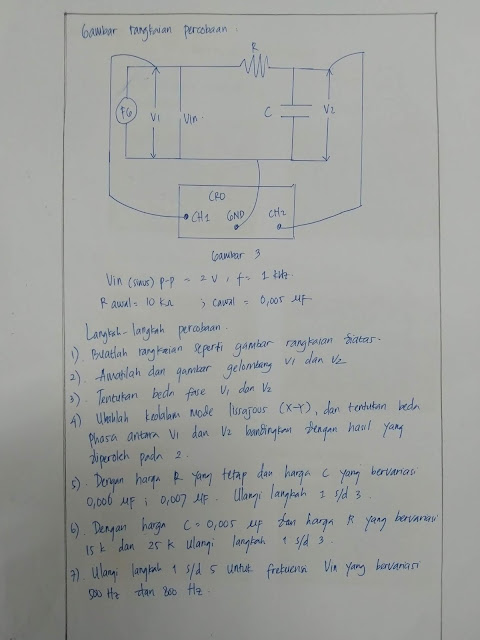 Gambar rangkaian percobaan :
R
FG
V1
Vin
C
V2
CRO
CH1
GND
CH2
Gambar 3
Vin (sinus) p-p ~ 2 V , f = 1 kHz.
R awal = 10 kΩ ; Cawal = 0,005 µF
Langkah-langkah percobaan.
1). Buatlah rangkaian seperti gambar rangkaian diatas.
2). Amatilah dan gambar gelombang V1 dan V2
3). Tentukan beda fase V1 dan V2
4) Ubahlah kedalam mode lissajous (X-Y), dan tentukan beda
phasa antara V1 dan V2 bandingkan dengan hasil yang
diperoleh pada 2.
5). Dengan harga R yang tetap dan harga C yang bervariasi
0,006 µF ; 0,007 µF. Ulangi langkah 1 s/d 3.
6). Dengan harga C = 0,005 µF dan harga R yang bervariasi
15 k dan 25 k ulangi langkah 1 s/d 3.
7). Ulangi langkah 1 s/d 5 untuk frekuensi Vin yang bervariasi
500 Hz dan 800 Hz.